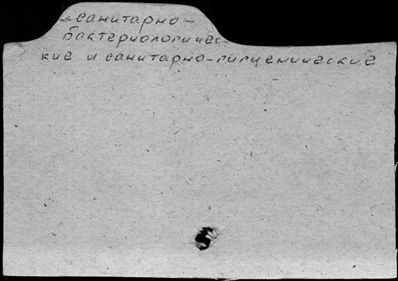 – санитарно-
бактериологичес
кие и санитарно-гигиенические